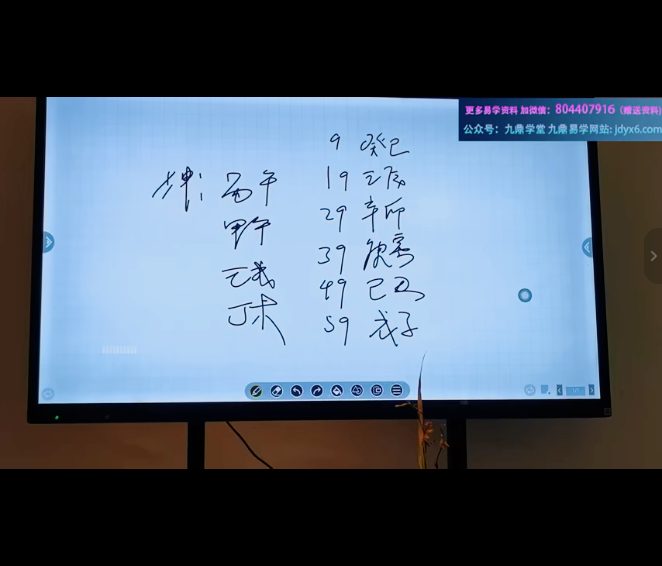 更多易学资料 加微信: 804407916 (赠送资料)
公众号: 九鼎学堂 九鼎易学网站: jdyx6.com
坤: 丙午
甲午
壬戌
丁未
9 癸巳
19 壬辰
29 辛卯
39 庚寅
49 己丑
59 戊子